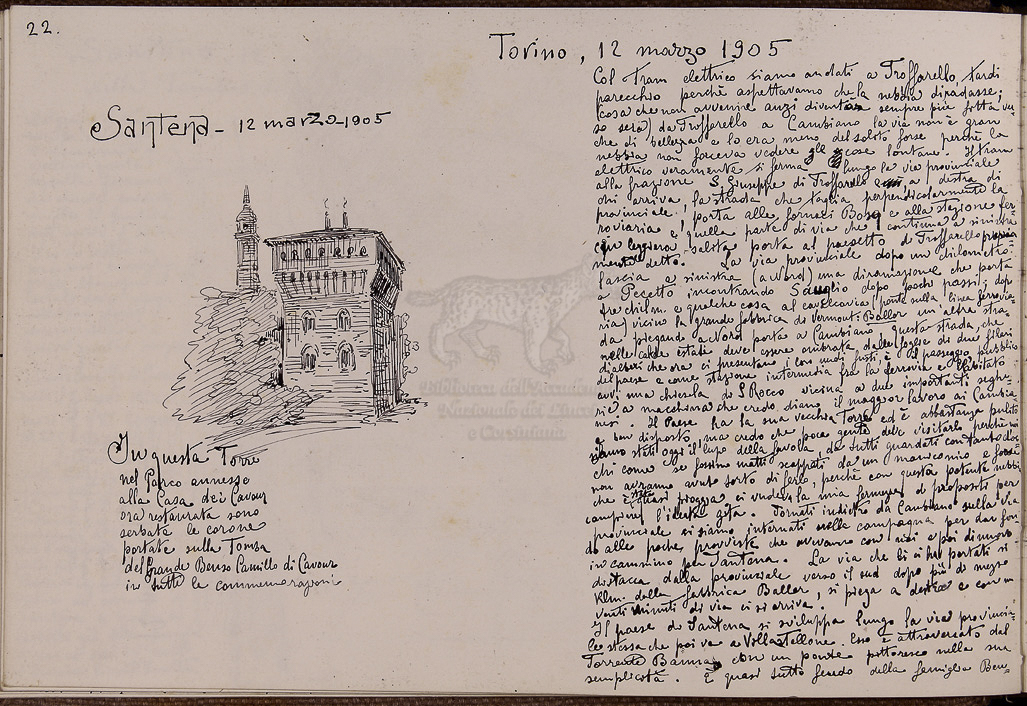 22.
Santena - 12 marzo 1905
In questa Torre
nel Parco annesso
alla Casa dei Cavour
ora restaurata sono
serbate le corone
portate sulla Tomba
del Grande Benso Camillo di Cavour
in tutte le commemorazioni
Torino, 12 marzo 1905
Col tram elettrico siamo andati a Troffarello, tardi
parecchio perchè aspettavamo che la nebbia diradasse;
(cosa che non avvenne anzi diventava sempre più fitta ver
so sera) da Troffarello a Cambiano la via non è gran
che di bellezza e lo era meno del solito forse perchè la
nebbia non faceva vedere le cose lontane. Il tram
elettrico veramente si ferma lungo la via provinciale
alla frazione S. Giuseppe di Troffarello e, a destra di
chi arriva, la strada che taglia perpendicolarmente la
provinciale, porta alle fornaci Bosq e alla stazione fer-
roviaria e quella parte di via che continua a sinistra
con leggera salita porta al paesetto di Troffarello propria
mente detto. La via provinciale dopo un chilometro
lascia a sinistra (a Nord) una diramazione che porta
a Pecetto incontrando dopo pochi passi; dopo
tre chilm. e qualche cosa al cavalcavia (ponte sulla linea ferrovia-
ria) vicino la grande fabbrica di Vermout: Ballor un'altra stra-
da piegando a Nord porta a Cambiano. Questa strada, che
nelle calde estati deve essere ombrata dalle foglie di due filari
d'alberi che ora ci presentano i loro nudi fusti, è il passeggio pubblico
del paese e come stazione intermedia fra la ferrovia e l'abitato
avvi una chiesula di S. Rocco vicina a due importanti seghe-
rie a macchina che credo diano il maggior lavoro ai Cambia
nesi. Il Paese ha la sua vecchia Torre ed è abbastanza pulito
e ben disposto, ma credo che poca gente deve visitarlo perchè noi
siamo stati oggi il lupo della favola, da tutti guardati con tanto d'oc-
chi come se fossimo matti scappati da un manicomio e forse
non avranno avuto torto di farlo, perchè con questa potente nebbia
che è quasi pioggia, ci vuole la mia fermezza di propositi per
compiere l' gita. Tornati indietro da Cambiano sulla via
provinciale ci siamo internati nella campagna per dar fon
do alle poche provviste che avevamo con noi e poi di nuovo
in cammino per Santena. La via che lì ci ha portati si
distacca dalla provinciale verso il sud dopo più di mezzo
Klm. dalla fabbrica Ballor, si piega a destra e con
venti minuti di via ci si arriva.
Il paese di Santena si sviluppa lungo la via provincia-
le stessa che poi va a Villastellone. Esso è attraversato dal
Torrente Banna con un ponte pittoresco nella sua
semplicità. È quasi tutto feudo della famiglia Ben-